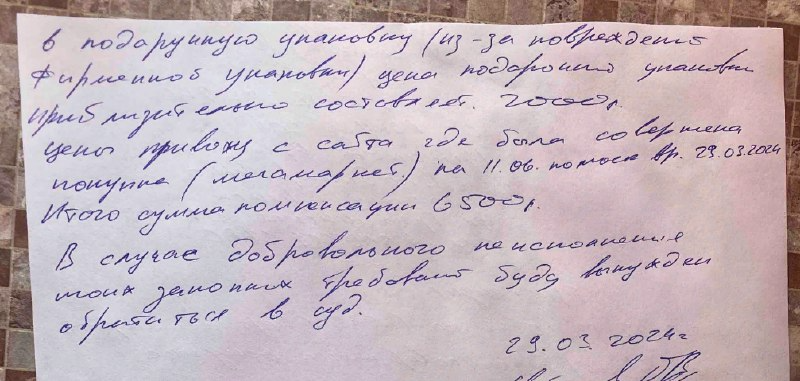 в подарочную упаковку (из-за повреждений
фирменной упаковки) цена подарочной упаковки
приблизительно составляет. 2000р.
цены привожу с сайта где была совершена
покупка (мегамаркет) на 11.06. по моск вр. 29.03.2024
Итого сумма компенсации 6500р.
В случае добровольного неисполнения
моих законных требований буду вынужден
обратиться в суд.
29.03.2024г